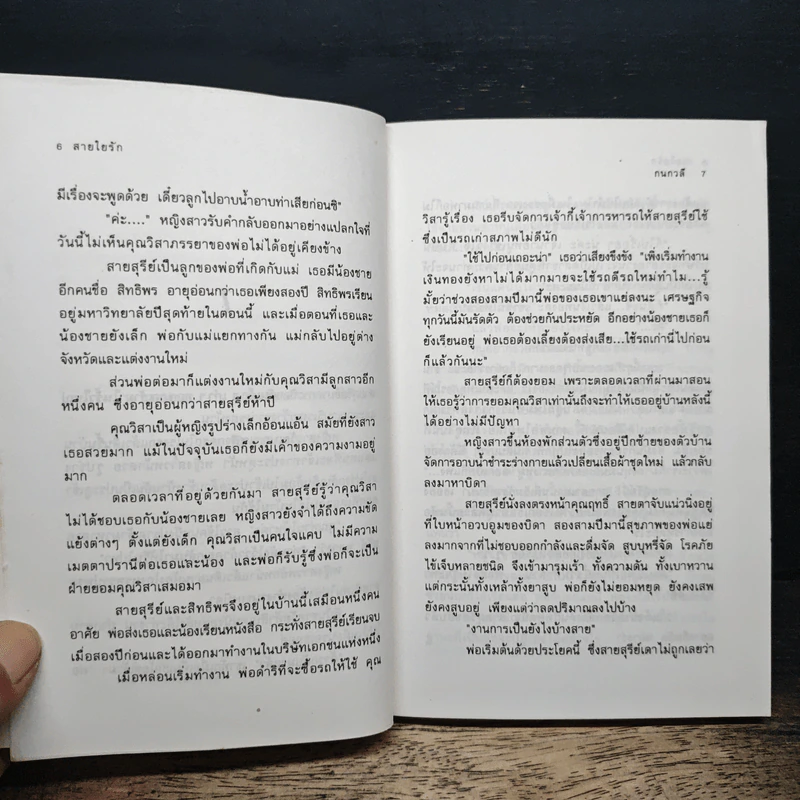 6 สายใยรัก
มีเรื่องจะพูดด้วย เดี๋ยวลูกไปอาบน้ำอาบท่าเสียก่อนซิ"
"ค่ะ...." หญิงสาวรับคำกลับออกมาอย่างแปลกใจที่
วันนี้ไม่เห็นคุณวิสาภรรยาของพ่อไม่ได้อยู่เคียงข้าง
สายสุรีย์เป็นลูกของพ่อที่เกิดกับแม่ เธอมีน้องชาย
อีกคนชื่อ สิทธิพร อายุอ่อนกว่าเธอเพียงสองปี สิทธิพรเรียน
อยู่มหาวิทยาลัยปีสุดท้ายในตอนนี้ และเมื่อตอนที่เธอและ
น้องชายยังเล็ก พ่อกับแม่แยกทางกัน แม่กลับไปอยู่ต่าง
จังหวัดและแต่งงานใหม่
ส่วนพ่อต่อมาก็แต่งงานใหม่กับคุณวิสามีลูกสาวอีก
หนึ่งคน ซึ่งอายุอ่อนกว่าสายสุรีย์ห้าปี
คุณวิสาเป็นผู้หญิงรูปร่างเล็กอ้อนแอ้น สมัยที่ยังสาว
เธอสวยมาก แม้ในปัจจุบันเธอก็ยังมีเค้าของความงามอยู่
มาก
ตลอดเวลาที่อยู่ด้วยกันมา สายสุรีย์รู้ว่าคุณวิสา
ไม่ได้ชอบเธอกับน้องชายเลย หญิงสาวยังจำได้ถึงความขัด
แย้งต่างๆ ตั้งแต่ยังเด็ก คุณวิสาเป็นคนใจแคบ ไม่มีความ
เมตตาปรานีต่อเธอและน้อง และพ่อก็รับรู้ซึ่งพ่อก็จะเป็น
ฝ่ายยอมคุณวิสาเสมอมา
สายสุรีย์และสิทธิพรจึงอยู่ในบ้านนี้เสมือนหนึ่งคน
อาศัย พ่อส่งเธอและน้องเรียนหนังสือ กระทั่งสายสุรีย์เรียนจบ
เมื่อสองปีก่อนและได้ออกมาทำงานในบริษัทเอกชนแห่งหนึ่ง
เมื่อหล่อนเริ่มทำงาน พ่อดำริที่จะซื้อรถให้ใช้ คุณ
กนกวลี 7
วิสารู้เรื่อง เธอรีบจัดการเจ้ากี้เจ้าการหารถให้สายสุรีย์ใช้
ซึ่งเป็นรถเก่าสภาพไม่ดีนัก
"ใช้ไปก่อนเถอะน่า" เธอว่าเสียงขึงขัง "เพิ่งเริ่มทำงาน
เงินทองยังหาไม่ได้มากมายจะใช้รถดีรถใหม่ทำไม...รู้
มั้ยว่าช่วงสองสามปีมานี้พ่อของเธอเขาแย่ลงนะ เศรษฐกิจ
ทุกวันนี้มันรัดตัว ต้องช่วยกันประหยัด อีกอย่างน้องชายเธอก็
ยังเรียนอยู่ พ่อเธอต้องเลี้ยงต้องส่งเสีย...ใช้รถเก่านี่ไปก่อน
ก็แล้วกันนะ"
สายสุรีย์ก็ต้องยอม เพราะตลอดเวลาที่ผ่านมาสอน
ให้เธอรู้ว่าการยอมคุณวิสาเท่านั้นถึงจะทำให้เธออยู่บ้านหลังนี้
ได้อย่างไม่มีปัญหา
หญิงสาวขึ้นห้องพักส่วนตัวซึ่งอยู่ปีกซ้ายของตัวบ้าน
จัดการอาบน้ำชำระร่างกายแล้วเปลี่ยนเสื้อผ้าชุดใหม่ แล้วกลับ
ลงมาหาบิดา
สายสุรีย์นั่งลงตรงหน้าคุณฤทธิ์ สายตาจับแน่วนิ่งอยู่
ที่ใบหน้าอวบอูมของบิดา สองสามปีมานี้สุขภาพของพ่อแย่
ลงมากจากที่ไม่ชอบออกกำลังและดื่มจัด สูบบุหรี่จัด โรคภัย
ไข้เจ็บหลายชนิด จึงเข้ามารุมเร้า ทั้งความดัน ทั้งเบาหวาน
แต่กระนั้นทั้งเหล้าทั้งยาสูบ พ่อก็ยังไม่ยอมหยุด ยังคงเสพ
ยังคงสูบอยู่ เพียงแต่ว่าลดปริมาณลงไปบ้าง
"งานการเป็นยังไงบ้างสาย"
พ่อเริ่มต้นด้วยประโยคนี้ ซึ่งสายสุรีย์เดาไม่ถูกเลยว่า